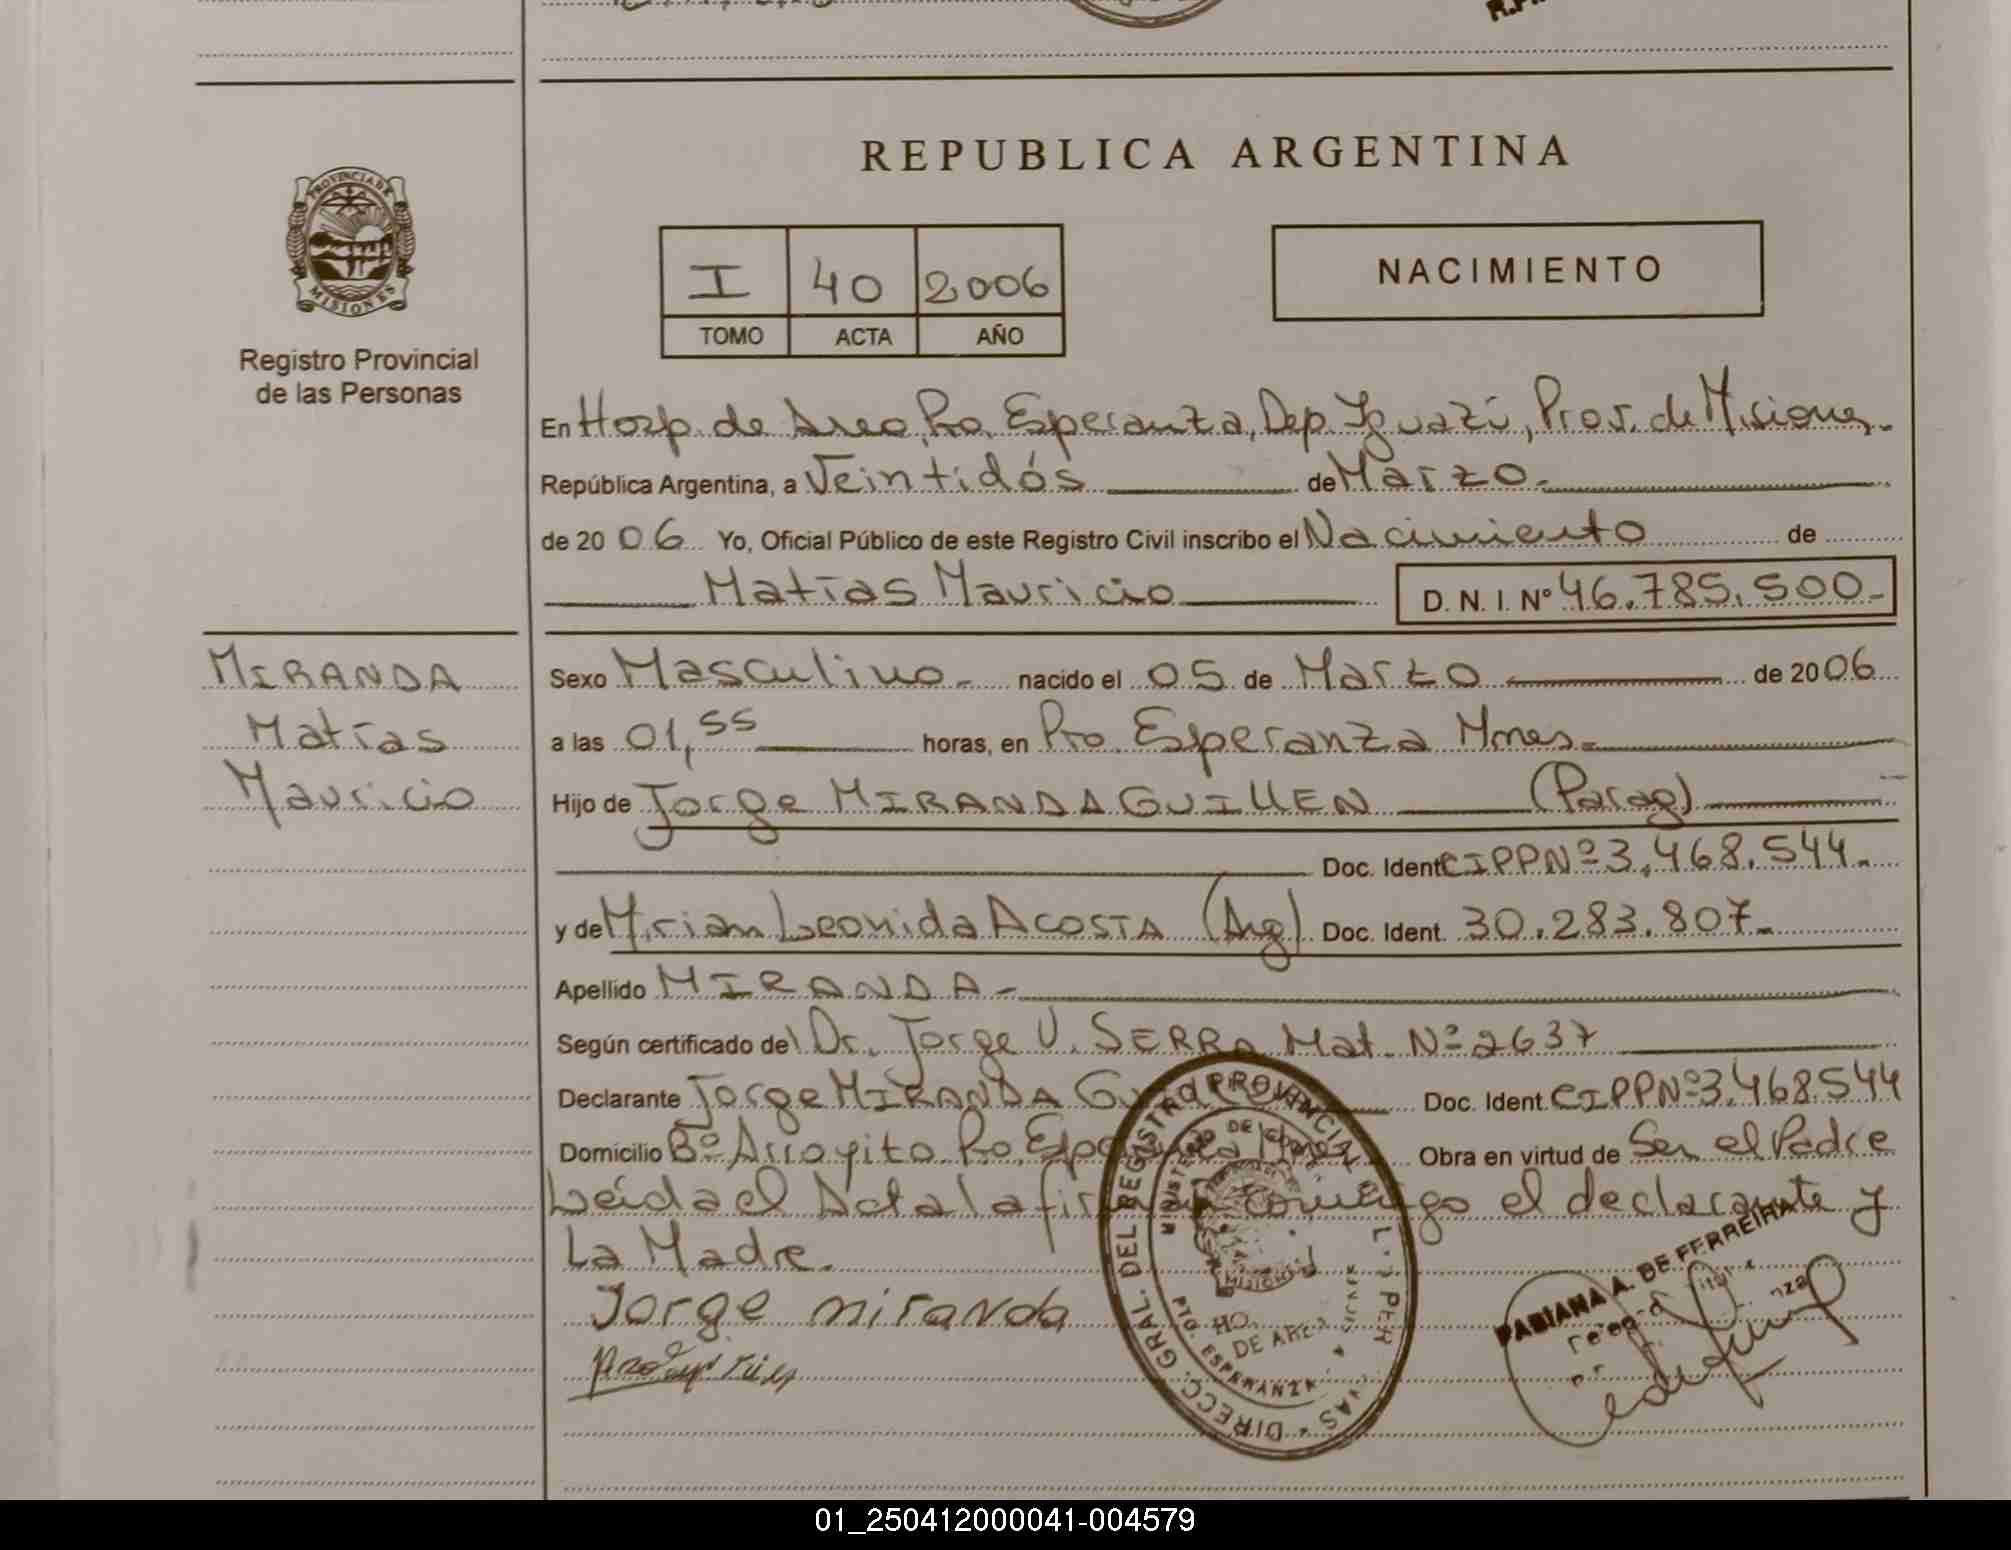 REPUBLICA ARGENTINA
PROVINCIA DE MISIONES
Registro Provincial
de las Personas
I 40 2006
TOMO ACTA AÑO
NACIMIENTO
En Hosp. de Area, Pto. Esperanza, Dep. Iguazú, Prov. de Misiones.
República Argentina, a Veintidós de Marzo.
de 2006 Yo, Oficial Público de este Registro Civil inscribo el Nacimiento de
Matías Mauricio D. N. I. Nº 46.785.500-
MIRANDA
Matías
Mauricio
Sexo Masculino.- nacido el 05 de Marzo de 2006
a las 01,55 horas, en Pto. Esperanza Mnes.
Hijo de Jorge MIRANDA GUILLEN (Parag)
Doc. Ident CIPPNº 3.468.544.-
y de Mirian Leonida ACOSTA (Arg) Doc. Ident. 30.283.807.-
Apellido MIRANDA-
Según certificado del Dr. Jorge V. SERRA Mat. Nº 2637
Declarante Jorge MIRANDA Doc. Ident. CIPPNº 3.468.544
Domicilio Bº Arroyito Pto. Esperanza Mnes Obra en virtud de Ser el Padre
Leída el Acta la firman conmigo el declarante y
La Madre.
Jorge miranda
DIRECC. GRAL. DEL REGISTRO PROVINCIAL
MINISTERIO DE
MISIONES
PTO. ESPERANZA
FABIANA A. DE FERREIRA
01_250412000041-004579